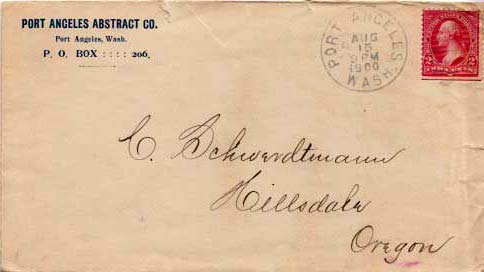 PORT ANGELES ABSTRACT CO.
Port Angeles, Wash.
P. O. BOX :::: 206.
PORT ANGELES,
AUG
15
9 PM
1900
WASH.
2 2
TWO CENTS
C. Schwerdtmann
Hillsdale
Oregon